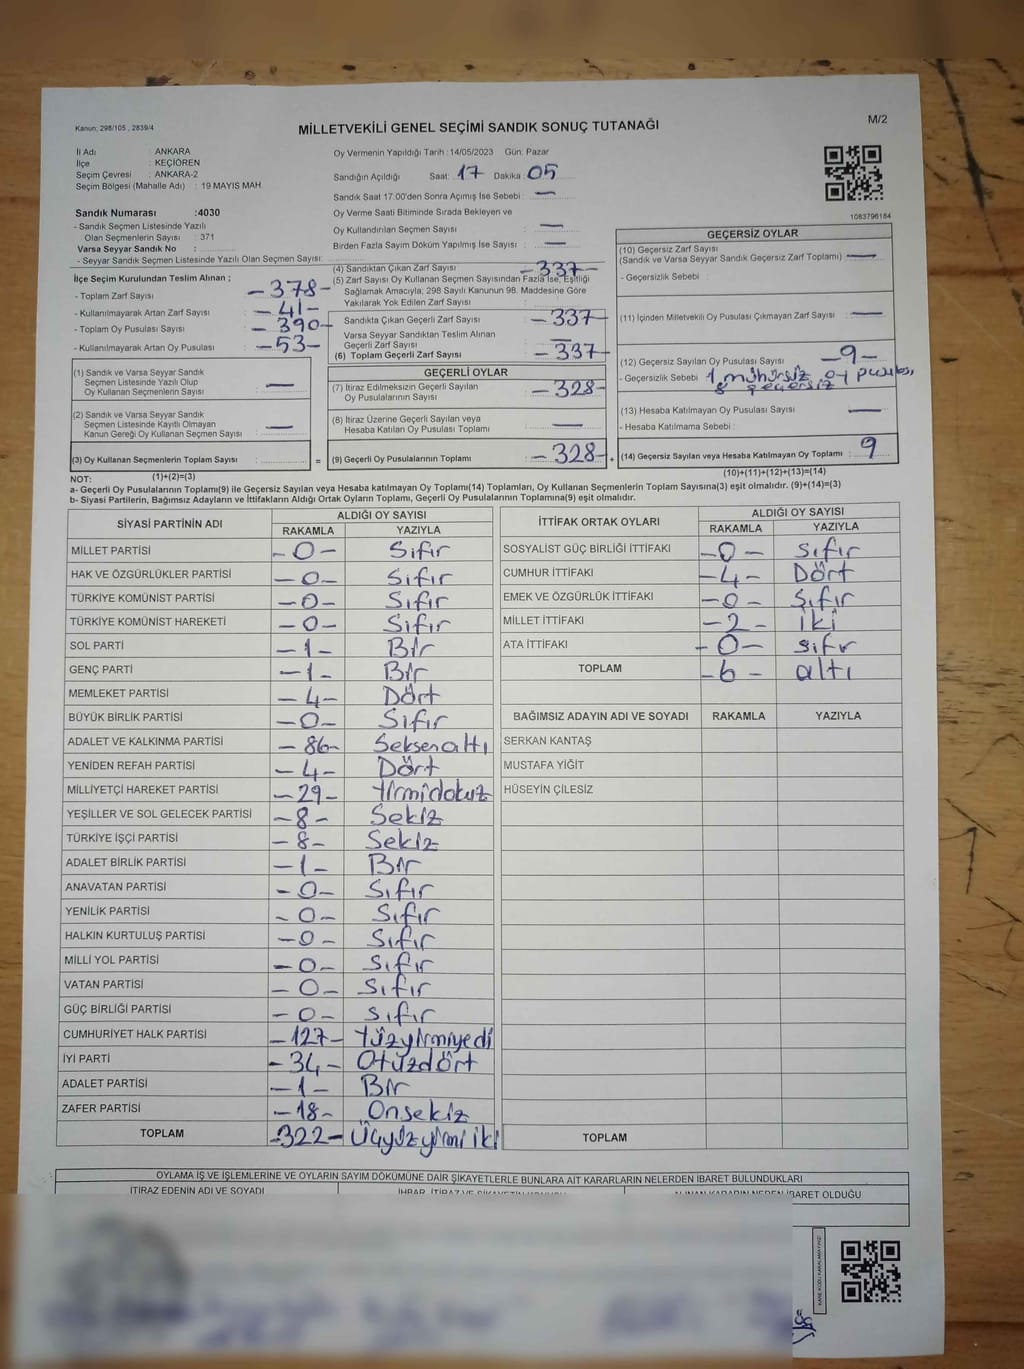 Kanun; 298/105 , 2839/4
MİLLETVEKİLİ GENEL SEÇİMİ SANDIK SONUÇ TUTANAĞI
M/2
İl Adı : ANKARA
İlçe : KEÇİÖREN
Seçim Çevresi : ANKARA-2
Seçim Bölgesi (Mahalle Adı) : 19 MAYIS MAH.
Sandık Numarası :4030
- Sandık Seçmen Listesinde Yazılı
Olan Seçmenlerin Sayısı : 371
Varsa Seyyar Sandık No :
- Seyyar Sandık Seçmen Listesinde Yazılı Olan Seçmen Sayısı:
Oy Vermenin Yapıldığı Tarih :14/05/2023 Gün: Pazar
Sandığın Açıldığı Saat: 17 Dakika 05
Sandık Saat 17.00'den Sonra Açımış İse Sebebi : —
Oy Verme Saati Bitiminde Sırada Bekleyen ve
Oy Kullandırılan Seçmen Sayısı : —
Birden Fazla Sayım Döküm Yapılmış İse Sayısı : —
1083796184
İlçe Seçim Kurulundan Teslim Alınan ;
- Toplam Zarf Sayısı -378-
- Kullanılmayarak Artan Zarf Sayısı -41-
- Toplam Oy Pusulası Sayısı -390-
- Kullanılmayarak Artan Oy Pusulası -53-
(1) Sandık ve Varsa Seyyar Sandık
Seçmen Listesinde Yazılı Olup
Oy Kullanan Seçmenlerin Sayısı : —
(2) Sandık ve Varsa Seyyar Sandık
Seçmen Listesinde Kayıtlı Olmayan
Kanun Gereği Oy Kullanan Seçmen Sayısı : —
(3) Oy Kullanan Seçmenlerin Toplam Sayısı : =
(1)+(2)=(3)
(4) Sandıktan Çıkan Zarf Sayısı -337-
(5) Zarf Sayısı Oy Kullanan Seçmen Sayısından Fazla İse, Eşitliği
Sağlamak Amacıyla, 298 Sayılı Kanunun 98. Maddesine Göre
Yakılarak Yok Edilen Zarf Sayısı :
Sandıkta Çıkan Geçerli Zarf Sayısı : -337-
Varsa Seyyar Sandıktan Teslim Alınan
Geçerli Zarf Sayısı : —
(6) Toplam Geçerli Zarf Sayısı : -337-
GEÇERLİ OYLAR
(7) İtiraz Edilmeksizin Geçerli Sayılan
Oy Pusulalarının Sayısı : -328-
(8) İtiraz Üzerine Geçerli Sayılan veya
Hesaba Katılan Oy Pusulası Toplamı : —
(9) Geçerli Oy Pusulalarının Toplamı : -328- +
GEÇERSİZ OYLAR
(10) Geçersiz Zarf Sayısı
(Sandık ve Varsa Seyyar Sandık Geçersiz Zarf Toplamı) : —
- Geçersizlik Sebebi :
(11) İçinden Milletvekili Oy Pusulası Çıkmayan Zarf Sayısı : —
(12) Geçersiz Sayılan Oy Pusulası Sayısı : -9-
- Geçersizlik Sebebi 1 mühürsüz oy pusulası,
8 geçersiz
(13) Hesaba Katılmayan Oy Pusulası Sayısı : —
- Hesaba Katılmama Sebebi :
(14) Geçersiz Sayılan veya Hesaba Katılmayan Oy Toplamı : 9
(10)+(11)+(12)+(13)=(14)
NOT:
a- Geçerli Oy Pusulalarının Toplamı(9) ile Geçersiz Sayılan veya Hesaba katılmayan Oy Toplamı(14) Toplamları, Oy Kullanan Seçmenlerin Toplam Sayısına(3) eşit olmalıdır. (9)+(14)=(3)
b- Siyasi Partilerin, Bağımsız Adayların ve İttifakların Aldığı Ortak Oyların Toplamı, Geçerli Oy Pusulalarının Toplamına(9) eşit olmalıdır.
SİYASİ PARTİNİN ADI ALDIĞI OY SAYISI
RAKAMLA YAZIYLA
MİLLET PARTİSİ -0- Sıfır
HAK VE ÖZGÜRLÜKLER PARTİSİ -0- Sıfır
TÜRKİYE KOMÜNİST PARTİSİ -0- Sıfır
TÜRKİYE KOMÜNİST HAREKETİ -0- Sıfır
SOL PARTİ -1- Bir
GENÇ PARTİ -1- Bir
MEMLEKET PARTİSİ -4- Dört
BÜYÜK BİRLİK PARTİSİ -0- Sıfır
ADALET VE KALKINMA PARTİSİ -86- Seksenaltı
YENİDEN REFAH PARTİSİ -4- Dört
MİLLİYETÇİ HAREKET PARTİSİ -29- Yirmidokuz
YEŞİLLER VE SOL GELECEK PARTİSİ -8- Sekiz
TÜRKİYE İŞÇİ PARTİSİ -8- Sekiz
ADALET BİRLİK PARTİSİ -1- Bir
ANAVATAN PARTİSİ -0- Sıfır
YENİLİK PARTİSİ -0- Sıfır
HALKIN KURTULUŞ PARTİSİ -0- Sıfır
MİLLİ YOL PARTİSİ -0- Sıfır
VATAN PARTİSİ -0- Sıfır
GÜÇ BİRLİĞİ PARTİSİ -0- Sıfır
CUMHURİYET HALK PARTİSİ -127- Yüzyirmiyedi
İYİ PARTİ -34- Otuzdört
ADALET PARTİSİ -1- Bir
ZAFER PARTİSİ -18- Onsekiz
TOPLAM -322- Üçyüzyirmi iki
İTTİFAK ORTAK OYLARI ALDIĞI OY SAYISI
RAKAMLA YAZIYLA
SOSYALİST GÜÇ BİRLİĞİ İTTİFAKI -0- Sıfır
CUMHUR İTTİFAKI -4- Dört
EMEK VE ÖZGÜRLÜK İTTİFAKI -0- Sıfır
MİLLET İTTİFAKI -2- İki
ATA İTTİFAKI -0- sıfır
TOPLAM -6- altı
BAĞIMSIZ ADAYIN ADI VE SOYADI RAKAMLA YAZIYLA
SERKAN KANTAŞ
MUSTAFA YİĞİT
HÜSEYİN ÇİLESİZ
TOPLAM
OYLAMA İŞ VE İŞLEMLERİNE VE OYLARIN SAYIM DÖKÜMÜNE DAİR ŞİKAYETLERLE BUNLARA AİT KARARLARIN NELERDEN İBARET BULUNDUKLARI
İTİRAZ EDENİN ADI VE SOYADI
KARE KODU KARALAMAYINIZ!